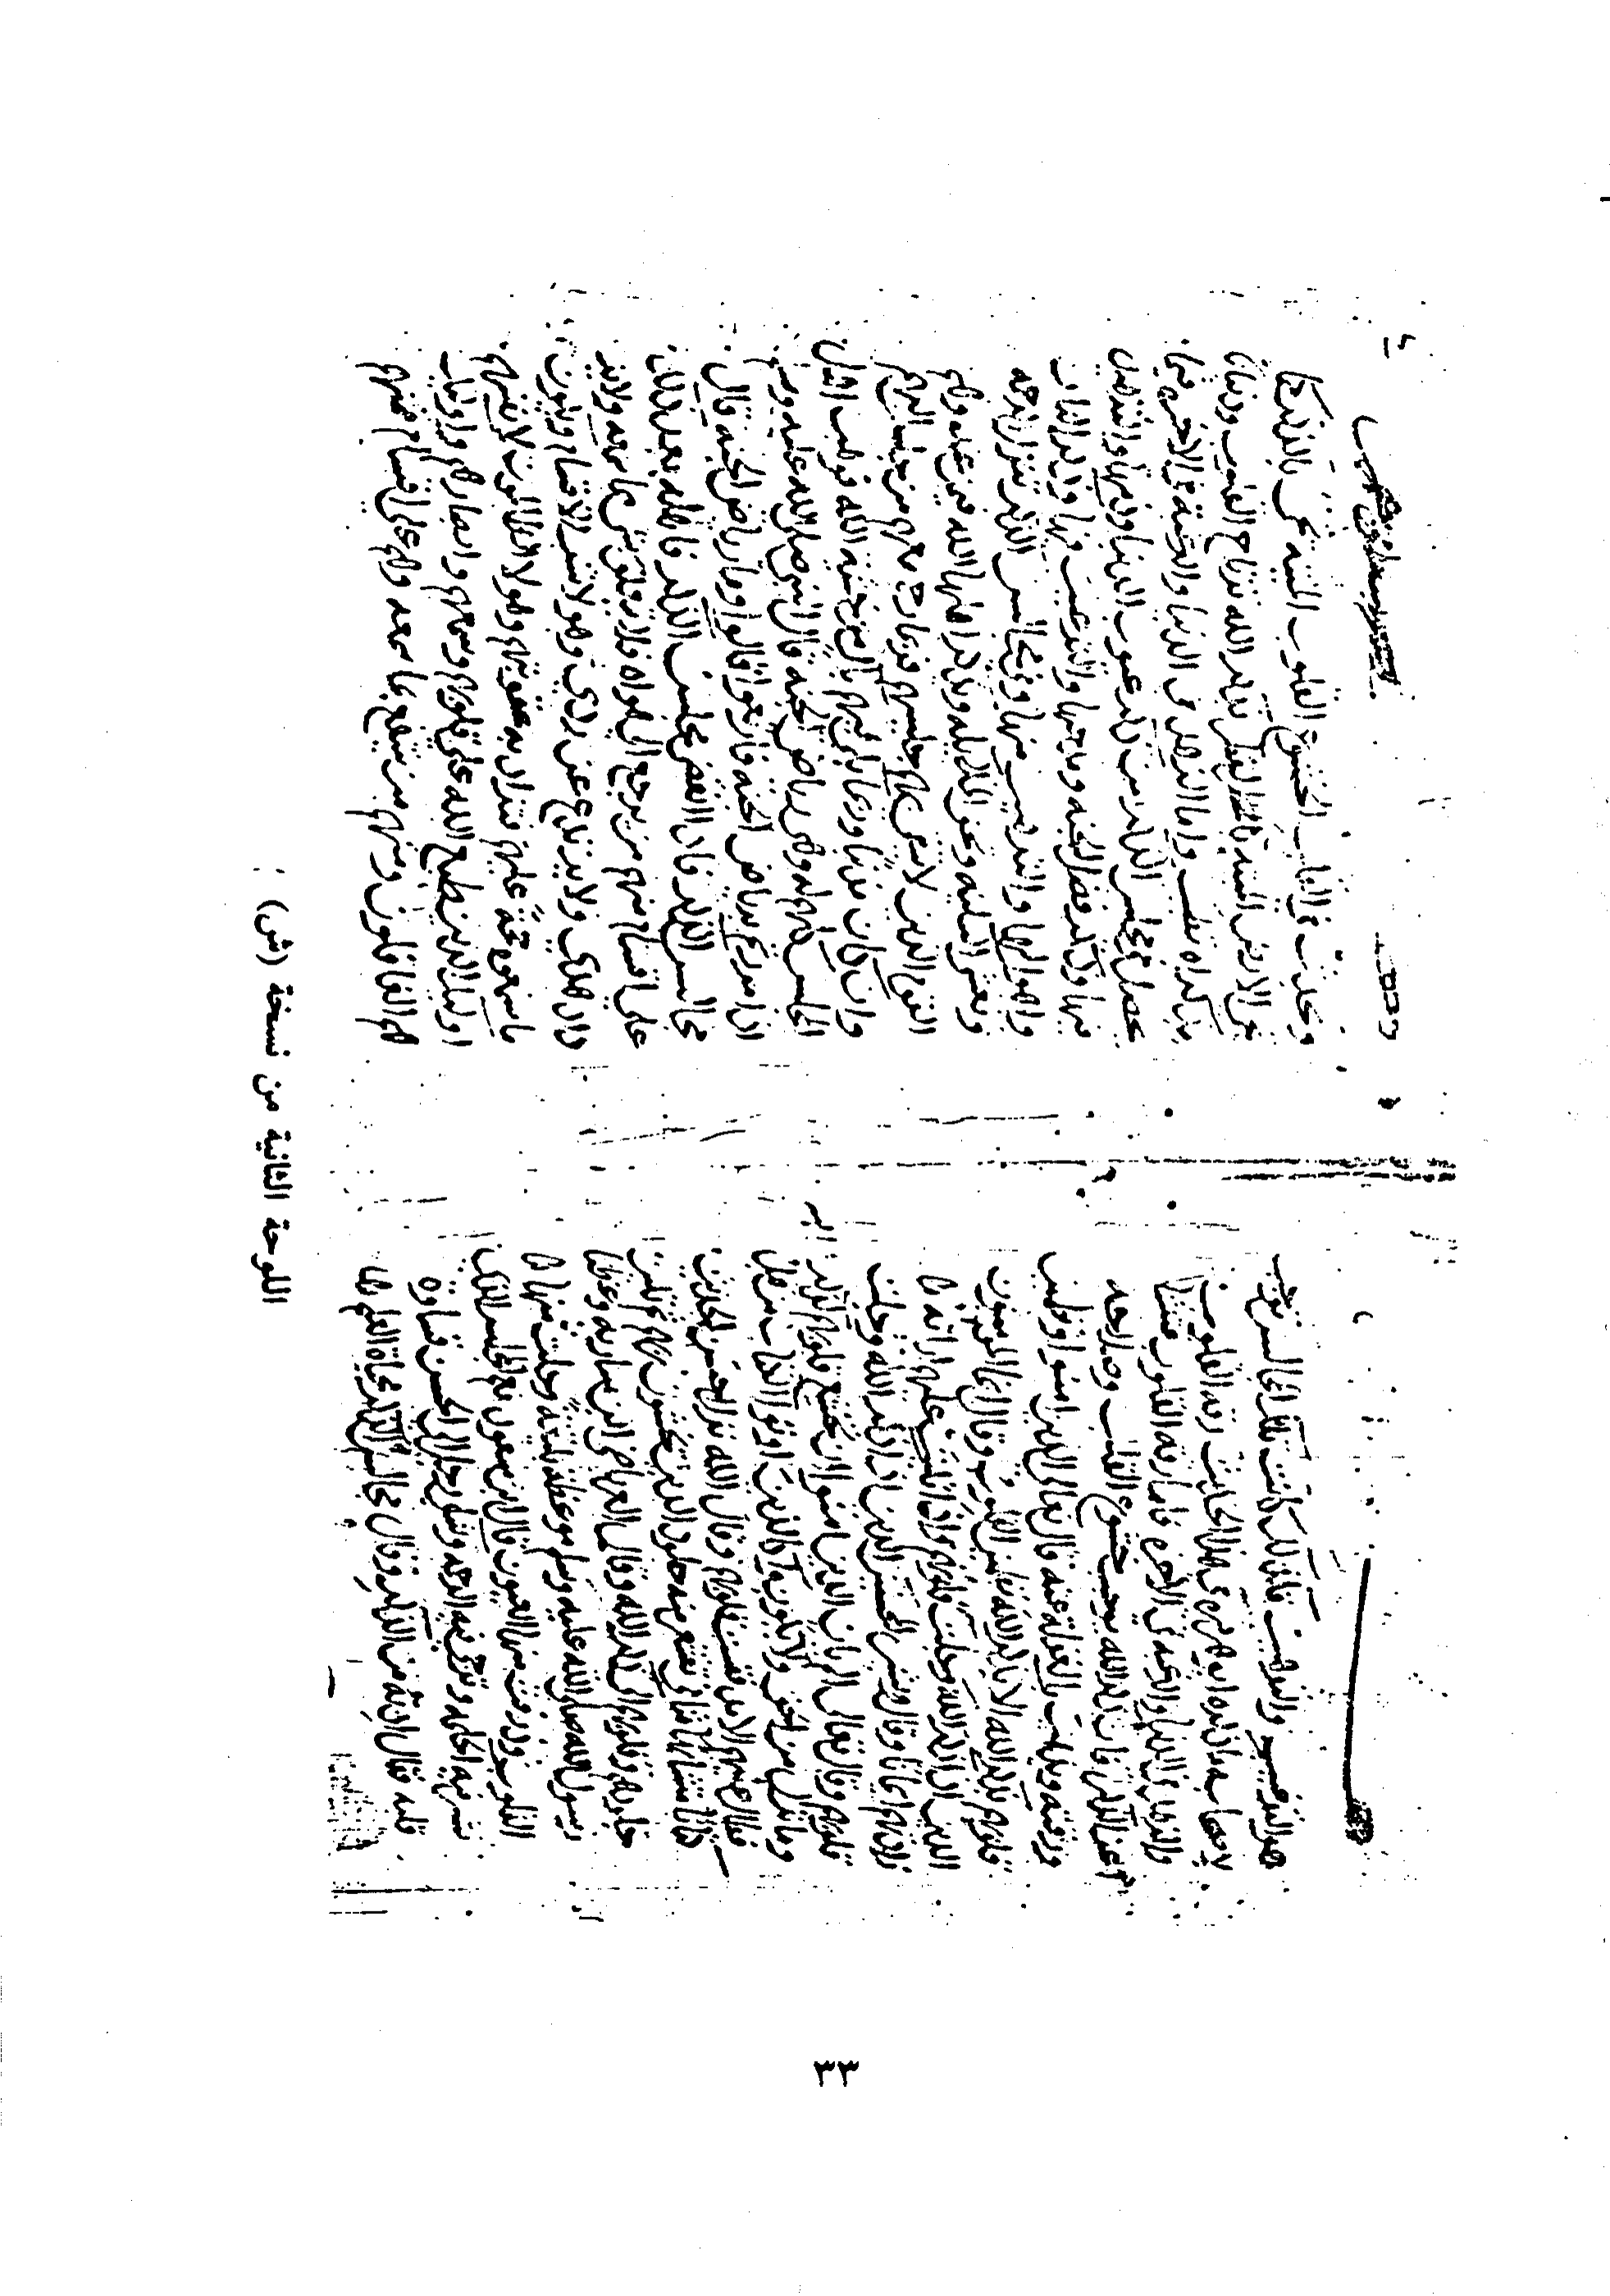 والترهيب فلذلك كانت تلك المجالس توجب
رقة القلوب
والزهد في الدنيا والرغبة في الاخرة فاما رقة القلوب فتنشأ
عن الذكر فان ذكر الله يوجب خشوع القلب وصلاحه
ورقته ويذهب بالغفلة عنه قال تعالى الذين امنوا وتطمئن
قلوبهم بذكر الله الا بذكر الله تطمئن القلوب وقال انما المؤمنون
الذين اذا ذكر الله وجلت قلوبهم واذا تليت عليهم اياته
زادتهم ايمانا وقال وبشر المخبتين الذين اذا ذكر الله وجلت
قلوبهم وقال تعالى الم يان للذين امنوا ان تخشع قلوبهم لذكر الله
وما نزل من الحق ولا يكونوا كالذين اوتوا الكتاب من قبل
فطال عليهم الامد فقست قلوبهم وقال الله نزل احسن الحديث
كتابا متشابها مثاني تقشعر منه جلود الذين يخشون ربهم ثم تلين
جلودهم وقلوبهم الى ذكر الله وقال العرباض بن سارية وعظنا
رسول الله صلى الله عليه وسلم موعظة بليغة وجلت منها
القلوب وذرفت منها العيون وقال ابن مسعود نعم المجلس الذي
تنشر فيه الحكمة وترجى فيه الرحمة وشكا رجل الى الحسن قساوة
قلبه فقال ادنه من الذكر وقال مجالس الذكر محياة العلم
وتحدث في القلب الخشوع القلوب الميتة تحيى بالذكر كما
تحيى الارض الميتة بالقطر بذكر الله ترتاح القلوب ودنيانا
بذكراه تطيب واما الزهد في الدنيا والرغبة في الاخرة فبما
يحصل في مجالس الذكر من ذكر عيوب الدنيا وذمها والتزهيد
فيها وذكر فضل الجنة ومدحها والترغيب فيها وذكر النار
واهوالها والترهيب منها وفي مجالس الذكر تنزل الرحمة
وتغشى السكينة وتحف الملائكة ويذكر اهلها الله فيمن عنده وهم
القوم الذين لا يشقى بهم جليسهم فربما رحم معهم من جلس اليهم
وان كان مذنبا وربما بكى فيهم باك من خشية الله فوهب اهل
المجلس كلهم له وهي رياض الجنة قال النبي صلى الله عليه وسلم
اذا مررتم برياض الجنة فارتعوا قالوا وما رياض الجنة قال
مجالس الذكر فاذا انقضى مجلس الذكر فاهله بعد ذلك
على اقسام فمنهم من يرجع الى هواه فلا يتعلق بشيء مما سمعه ولا يزداد
هدى ولا يرتدع عن ردى وهؤلاء شر الاقسام ويكون
ما سمعوه حجة عليهم فتزداد به عقوبتهم وهؤلاء الظالمون لانفسهم
اولئك الذين طبع الله على قلوبهم وسمعهم وابصارهم واولئك
هم الغافلون ومنهم من ينتفع بما سمعه وهم على اقسام فمنهم
اللوحة الثانية من نسخة (ش)
٣٣